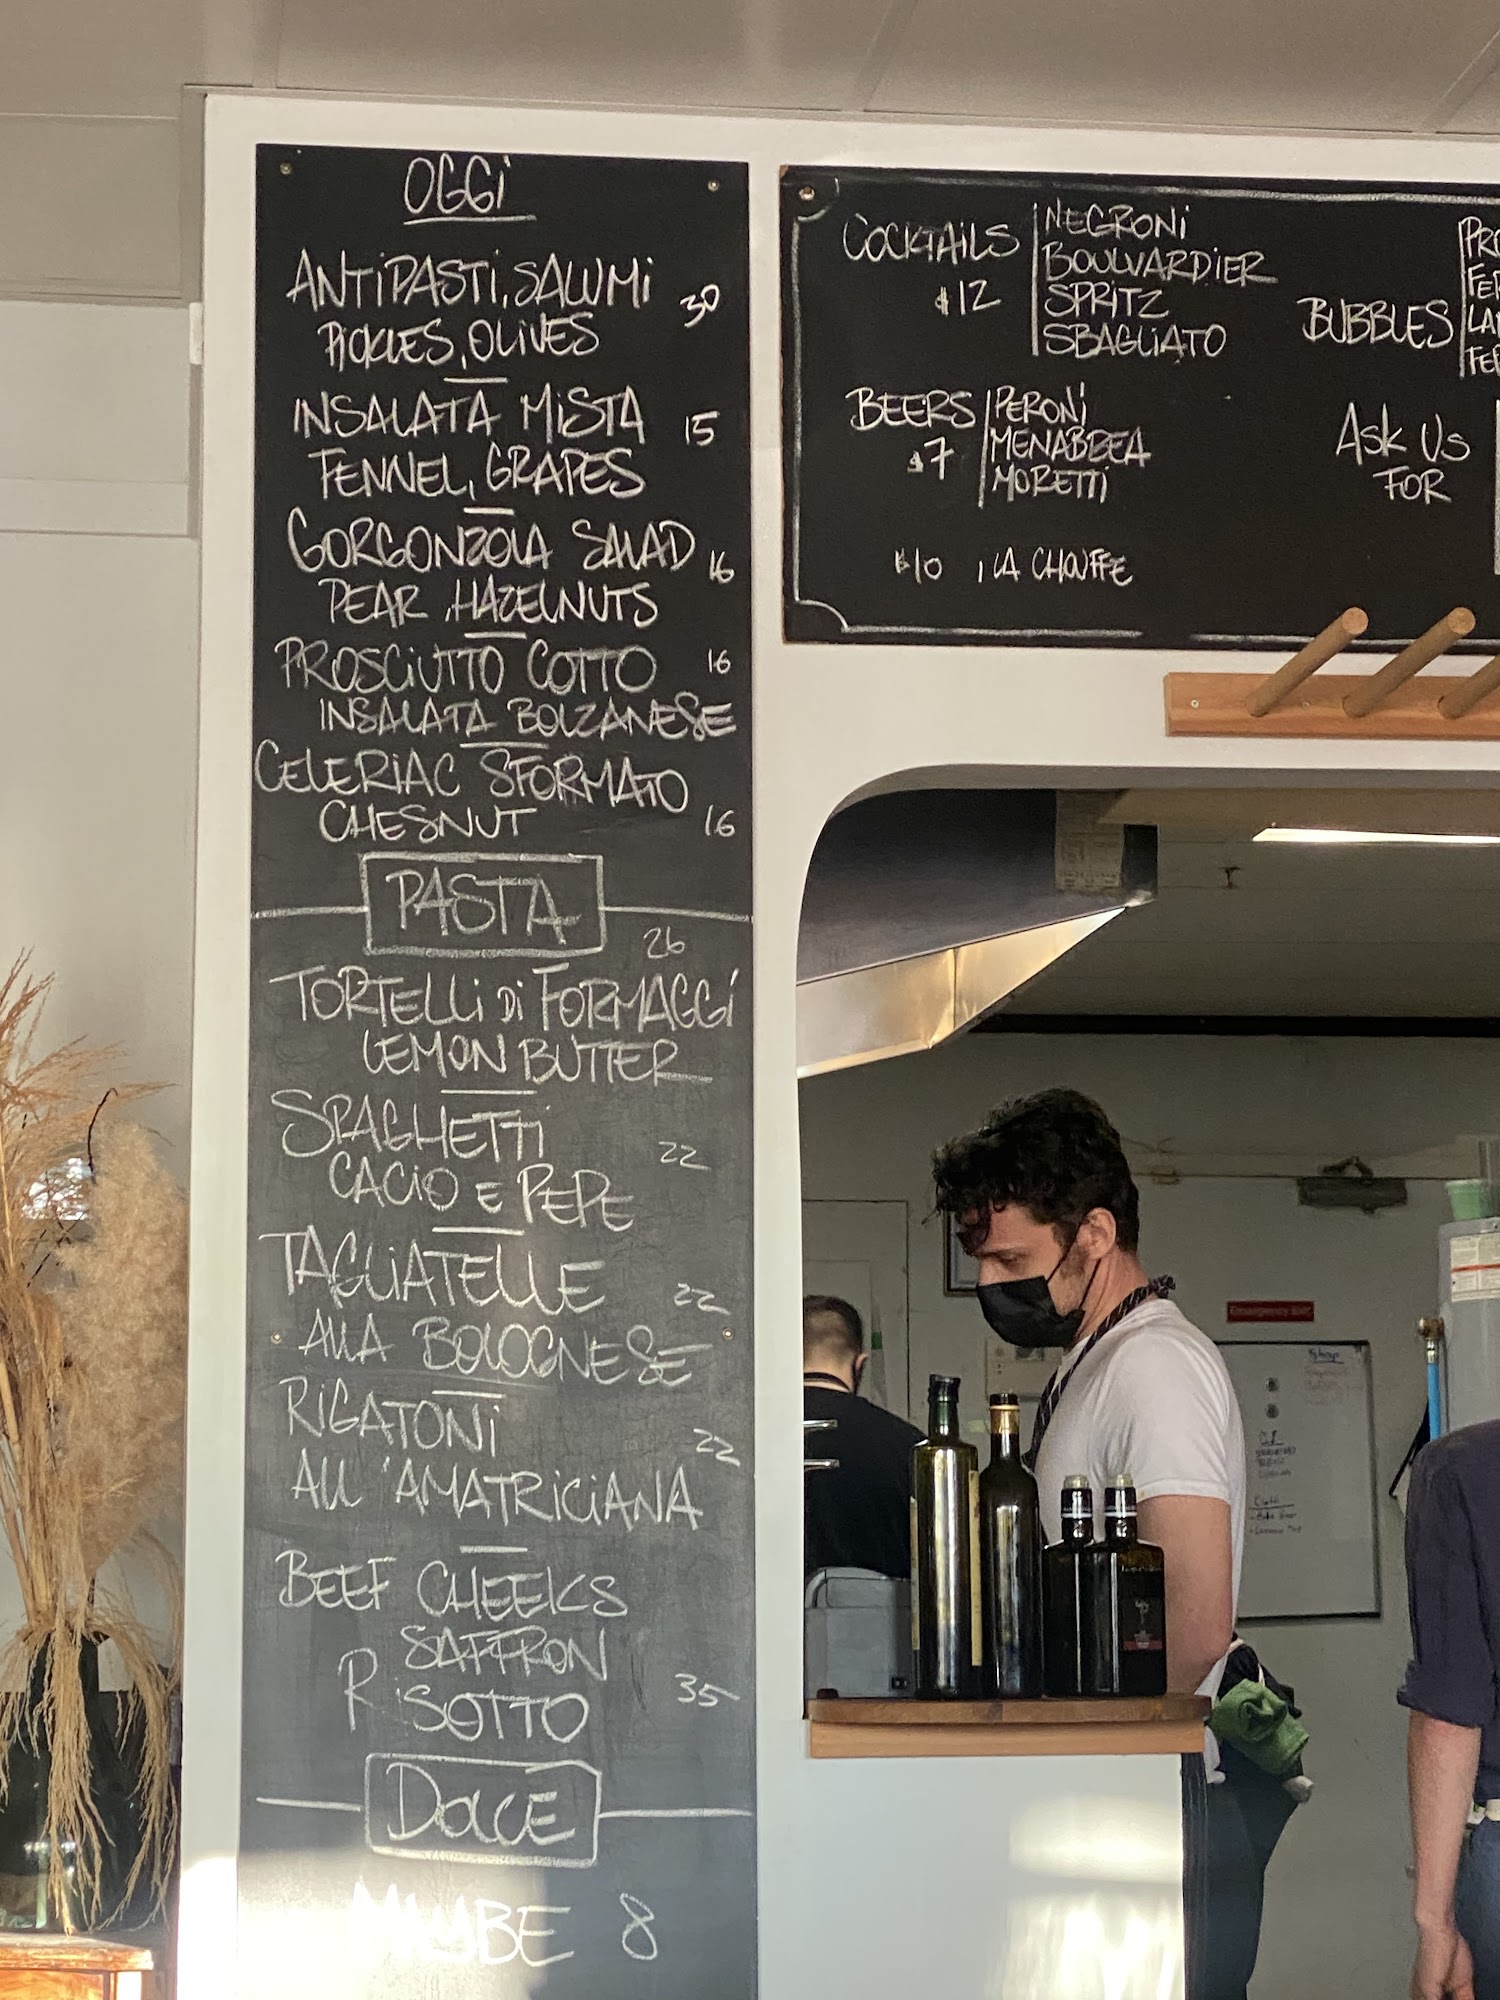 OGGI
ANTIPASTI, SALUMI
PICKLES, OLIVES
30
INSALATA MISTA
15
FENNEL, GRAPES
GORGONZOLA SALAD
16
PEAR, HAZELNUTS
PROSCIUTTO COTTO
16
INSALATA BOLZANESE
CELERIAC SFORMATO
CHESNUT
16
PASTA
26
TORTELLI DI FORMAGGI
LEMON BUTTER
SPAGHETTI
22
CACIO E PEPE
TAGLIATELLE
22
ALLA BOLOGNESE
RIGATONI
22
ALL'AMATRICIANA
BEEF CHEEKS
SAFFRON
RISOTTO
35
DOLCE
8
COCKTAILS
$12
NEGRONI
BOULVARDIER
SPRITZ
SBAGLIATO
BEERS
$7
PERONI
MENABREA
MORETTI
$10 LA CHOUFFE
BUBBLES
ASK US
FOR
Emergency Exit